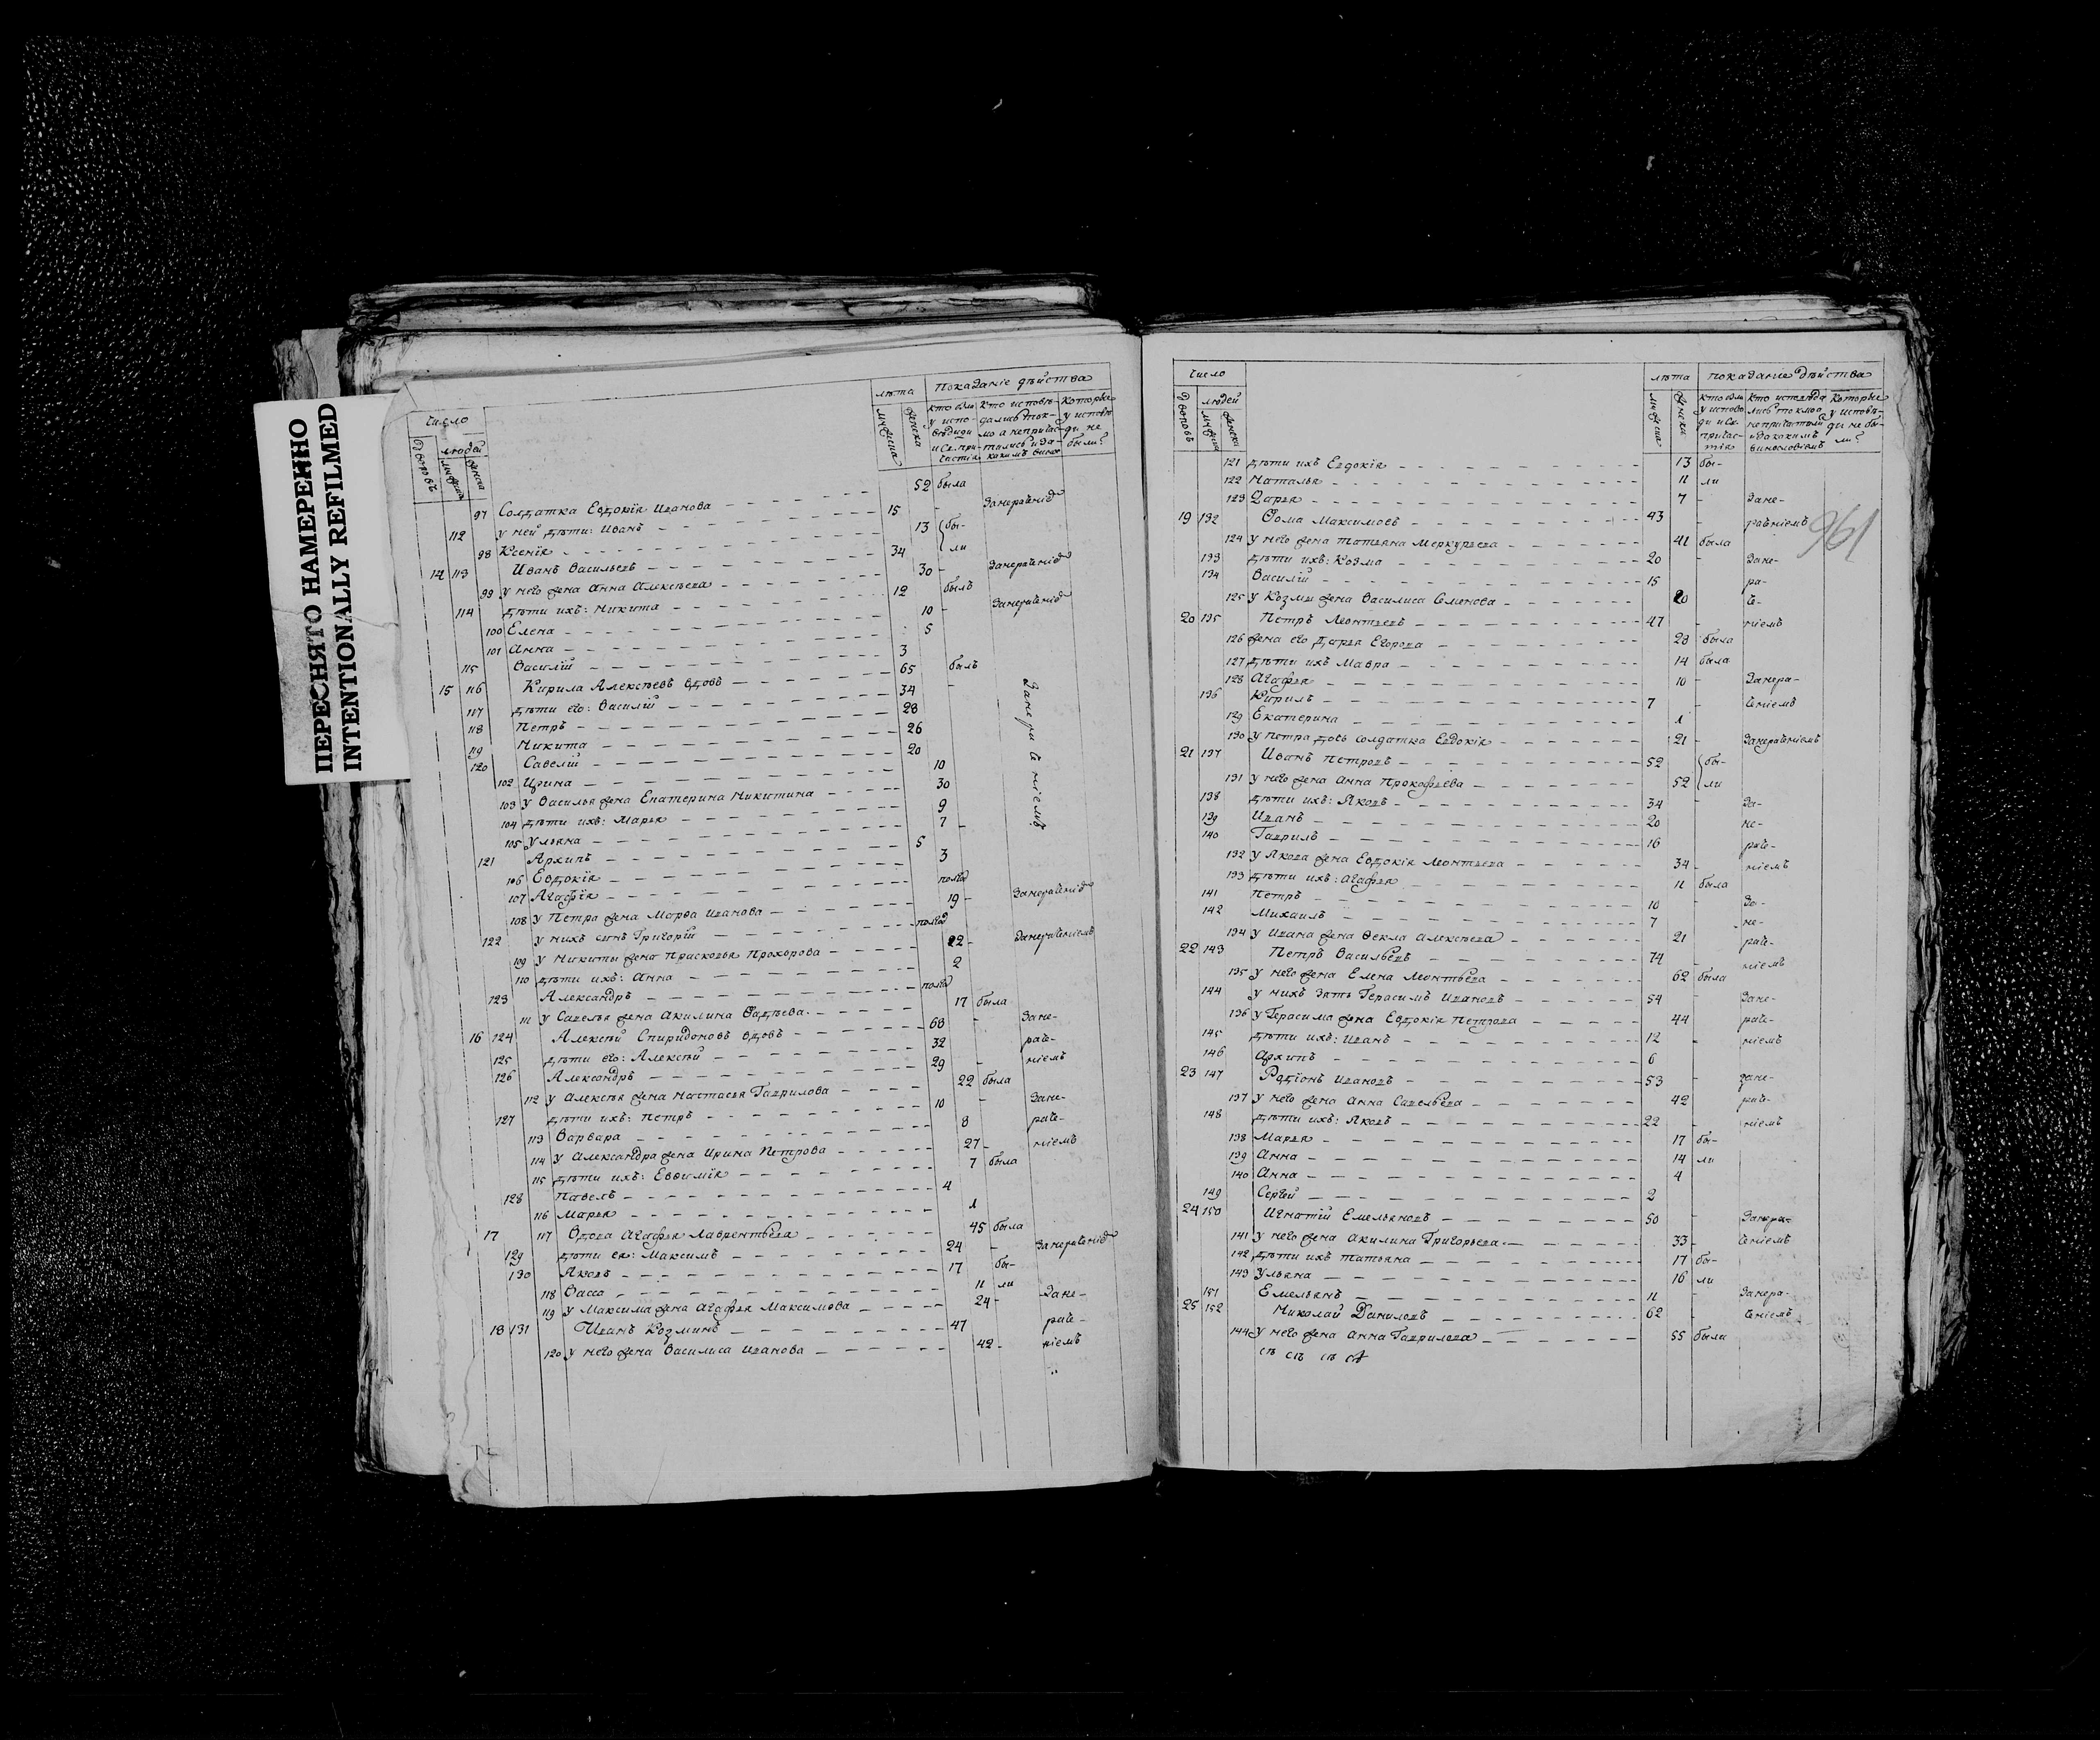 ПЕРЕСНЯТО НАМЕРЕННО
INTENTIONALLY REFILMED
число лѣта показаніе дѣйства
дворовъ людей мужеска женска мужеска женска кто были у исповѣди и Св. причастія кто исповѣдались токмо а непричастились и за какимъ вино Которые у исповѣди не были?
97 Солдатка Евдокія Иванова 52 была
112 у ней дѣти: Иванъ 15 - занерачѣніе
98 Ксенія 13 бы-
14 113 Иванъ Васильевъ 34 ли
99 у него жена Анна Алексѣева 30 - занерачѣніе
114 дѣти ихъ: Никита 12 былъ
100 Елена 10 - занерачѣніе
101 Анна 5
115 Василій 3
15 116 Кирила Алексѣевъ вдовъ 65 былъ
117 дѣти его: Василій 34 -
118 Петръ 28
119 Никита 26
120 Савелій 20
102 Ирина 10
103 у Василья жена Екатерина Никитина 30
104 дѣти ихъ: Марья 9
105 Ульяна 7 -
занераченіемъ
121 Архипъ 5
106 Евдокія 3
107 Агафія полгода
108 у Петра жена Марѳа Иванова 19 - занерачѣніе
122 у нихъ сынъ Григорій полгода
109 у Никиты жена Прасковья Прохорова 22 - занераченіемъ
110 дѣти ихъ: Анна 2
123 Александръ полгода
111 у Савелья жена Акилина Фадѣева 17 была
16 124 Алексѣй Спиридоновъ вдовъ 68 - зане-
125 дѣти его: Алексѣй 32 раче-
126 Александръ 29 - ніемъ
112 у Алексѣя жена Настасья Гаврилова 22 была
127 дѣти ихъ: Петръ 10 - зане-
113 Варвара 8 раче-
114 у Александра жена Ирина Петрова 27 - ніемъ
115 дѣти ихъ: Евѳимія 7 была
128 Павелъ 4
116 Марья 1
17 117 Вдова Агафья Лаврентьева 45 была
129 дѣти ея: Максимъ 24 - занераченіе
130 Яковъ 17 бы-
118 Васса 11 ли
119 у Максима жена Агафья Максимова 24 - зане-
18 131 Иванъ Козминъ 47 раче-
120 у него жена Василиса Иванова 42 - ніемъ
число лѣта показаніе дѣйства
дворовъ людей мужеска женска мужеска женска кто были у исповѣди и Св. причастія кто исповѣдались токмо а непричастились и за какимъ винословіемъ Которые у исповѣди не были?
121 дѣти ихъ Евдокія 13 бы-
122 Наталья 11 ли
123 Дарья 7 - зане-
19 132 Ѳома Максимовъ 43 - рачѣніемъ
961
124 у него жена Татьяна Меркурьева 41 была
133 дѣти ихъ: Козма 20 - зане-
134 Василій 15 - ра-
125 у Козмы жена Василиса Семенова 20 - че-
20 135 Петръ Леонтьевъ 47 - ніемъ
126 жена его Дарья Егорова 28 была
127 дѣти ихъ Мавра 14 была
128 Агафья 10 - занера-
136 Кирилъ 7 - ченіемъ
129 Екатерина 1
130 у Петра дочь солдатка Евдокія 21 - занераченіемъ
21 137 Иванъ Петровъ 52 бы-
131 у него жена Анна Прокофьева 52 ли
138 дѣти ихъ: Яковъ 34 - за-
139 Иванъ 20 не-
140 Гаврилъ 16 раче-
132 у Якова жена Евдокія Леонтьева 34 - ніемъ
133 дѣти ихъ: Агафья 11 была
141 Петръ 10 - за-
142 Михаилъ 7 не-
134 у Ивана жена Ѳекла Алексѣева 21 раче-
22 143 Петръ Васильевъ 74 - ніемъ
135 у него жена Елена Леонтьева 62 была
144 у нихъ зять Герасимъ Ивановъ 54 - зане-
136 у Герасима жена Евдокія Петрова 44 раче-
145 дѣти ихъ: Иванъ 12 - ніемъ
146 Архипъ 6
23 147 Родіонъ Ивановъ 53 - зане-
137 у него жена Анна Савельева 42 раче-
148 дѣти ихъ: Яковъ 22 - ніемъ
138 Марья 17 бы-
139 Анна 14 ли
140 Анна 4
149 Сергѣй 2
24 150 Игнатій Емельяновъ 50 - занера-
141 у него жена Акилина Григорьева 33 - ченіемъ
142 дѣти ихъ Татьяна 17 бы-
143 Ульяна 16 ли
151 Емельянъ 11 - занера-
25 152 Николай Даниловъ 62 - ченіемъ
144 у него жена Анна Гаврилова 55 была